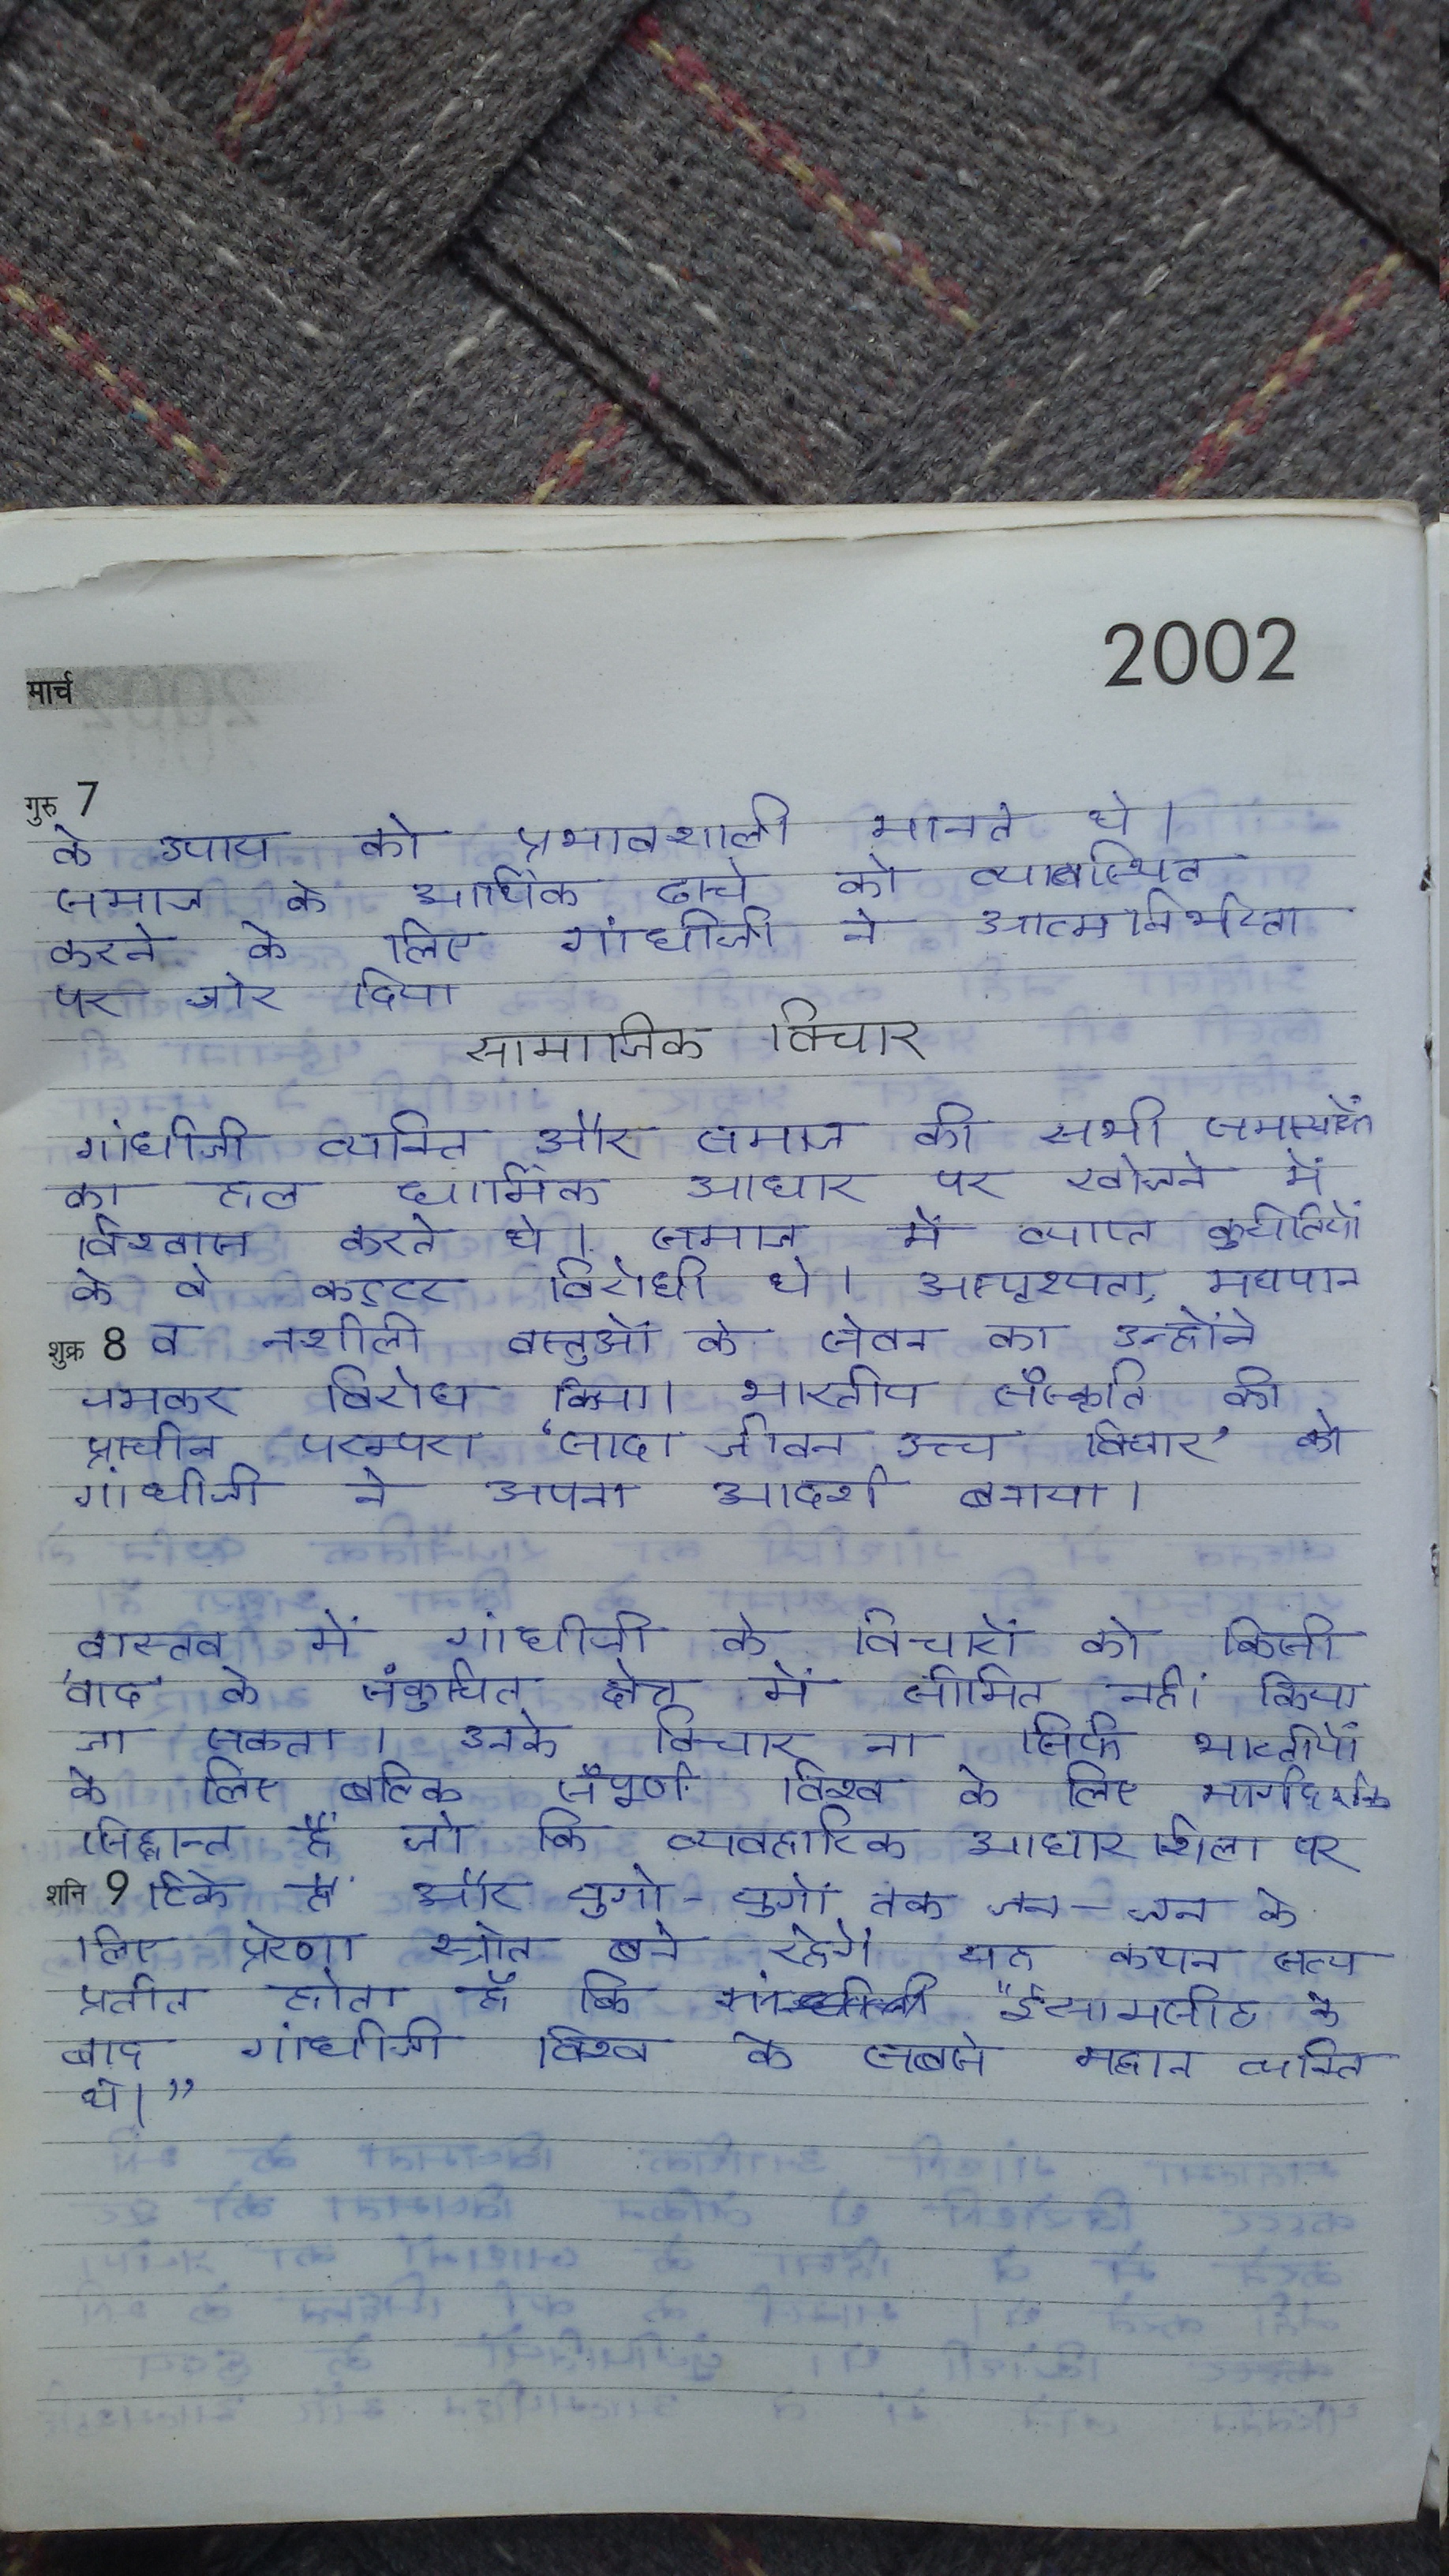 2002
मार्च
गुरु 7
के उपाय को प्रभावशाली मानते थे।
समाज के आर्थिक ढाचे को व्यावस्थित
करने के लिए गांधीजी ने आत्मनिर्भरता
पर जोर दिया
सामाजिक विचार
गांधीजी व्यक्ति और समाज की सभी समस्याओं
का हल धार्मिक आधार पर खोजने में
विश्वास करते थे। समाज में व्याप्त कुरीतियों
के वे कट्टर विरोधी थे। अस्पृश्यता, मद्यपान
शुक्र 8 व नशीली वस्तुओं के सेवन का उन्होंने
जमकर विरोध किया। भारतीय संस्कृति की
प्राचीन परम्परा ‘सादा जीवन उच्च विचार’ को
गांधीजी ने अपना आदर्श बनाया।
वास्तव में गांधीजी के विचारों को किसी
'वाद' के संकुचित क्षेत्र में सीमित नहीं किया
जा सकता। उनके विचार ना सिर्फ भारतीयों
के लिए बल्कि संपूर्ण विश्व के लिए मार्गदर्शक
सिद्धान्त हैं जो कि व्यवहारिक आधारशिला पर
शनि 9 टिके हैं और युगो-युगों तक जन-जन के
लिए प्रेरणा स्त्रोत बने रहेंगे। यह कथन सत्य
प्रतीत होता है कि "ईसामसीह के
बाद गांधीजी विश्व के सबसे महान व्यक्ति
थे।”